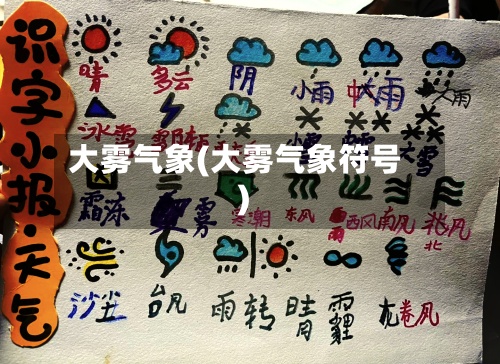 识字小报·天气
晴 多云 阴 小雨 中雨 大雨
冰雹
大雾气象(大雾气象符号
)
霜冻 雾 寒潮 东风 西风 南风 北风
北
沙尘 台风 雨转晴 雨霾 龙卷风